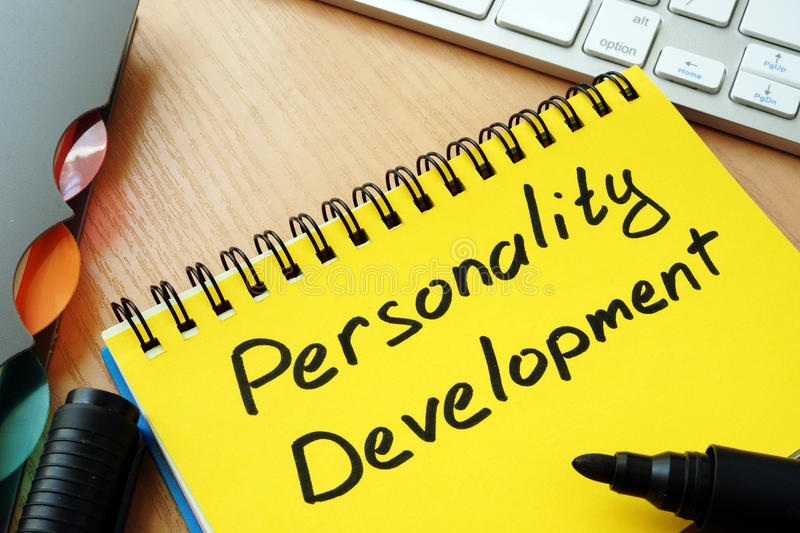 alt
option
Home
PgUp
PgDn
Personality
Development
dreamstime